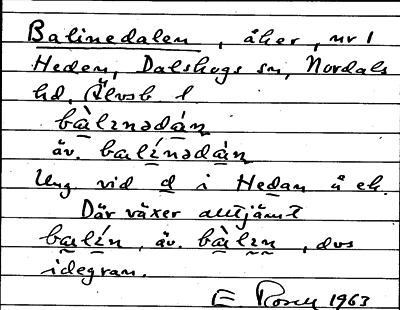 Balinedalen, åker, nr 1
Heden, Dalskogs sn, Nordals
hd, Älvsb. l
bàlɪnədán
äv. balínədàn
Ung. vid d i Hedan å ek.
Där växer alltjämt
balín, äv. bàlɪn, dvs
idegran.
E. 1963